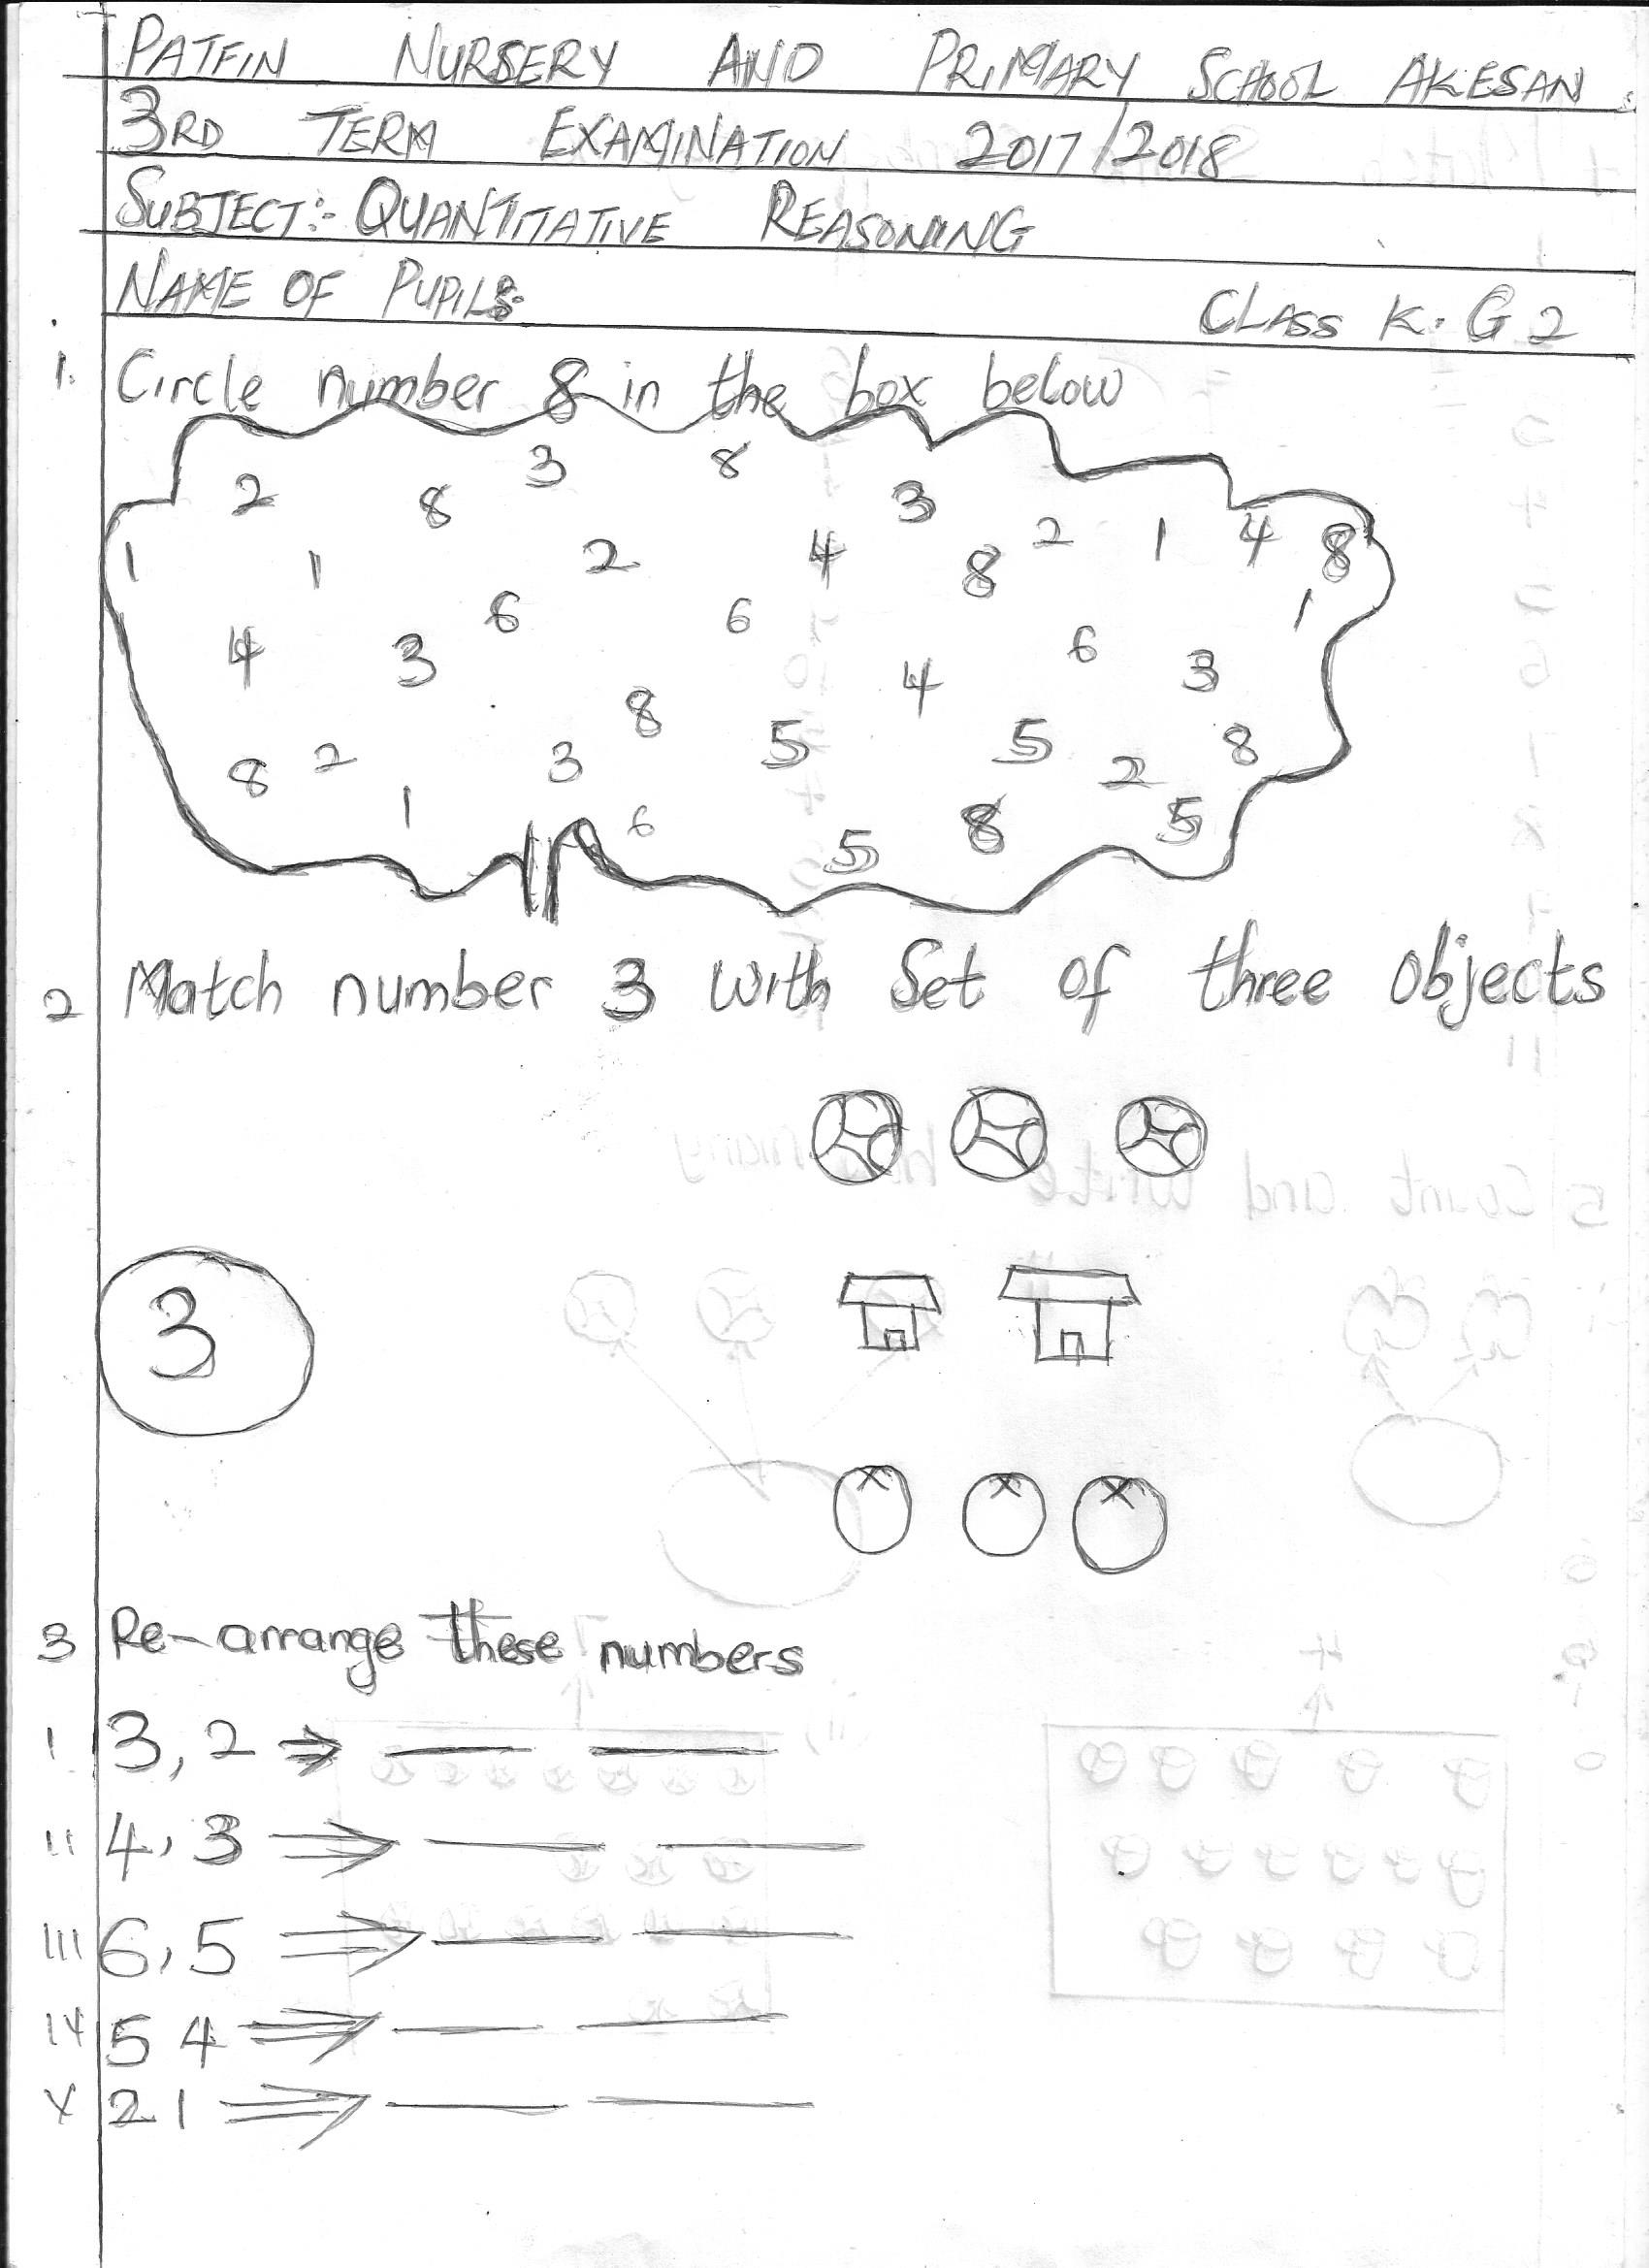 PATFIN NURSERY AND PRIMARY SCHOOL AKESAN
3RD TERM EXAMINATION 2017/2018
SUBJECT:- QUANTITATIVE REASONING
NAME OF PUPILS:
CLASS K.G 2
1. Circle number 8 in the box below
2 8 3 8 3 2 1 4 8
1 1 2 4 8 1
4 3 6 6 4 6 3
8 2 3 8 5 5 2 8
1 6 5 8 5
2 Match number 3 with Set of three objects
3
3 Re-arrange these numbers
I 3, 2 ⇒ ___ ___
II 4, 3 ⇒ ___ ___
III 6, 5 ⇒ ___ ___
IV 5 4 ⇒ ___ ___
V 2 1 ⇒ ___ ___